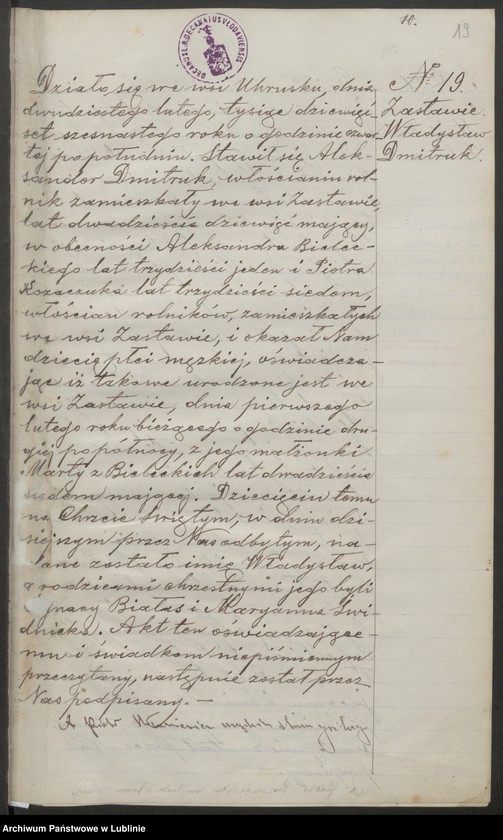 10.
19
DECANUS DECANATUS VLODAVIENSIS
Działo się we wsi Uhrusku, dnia
dwudziestego lutego, tysiąc dziewięć-
set szesnastego roku o godzinie czwar-
tej po południu. Stawił się Alek-
sander Dmitruk, włościanin rol-
nik zamieszkały we wsi Zastawie,
lat dwadzieścia dziewięć mający,
w obecności Aleksandra Bielec-
kiego lat trzydzieści jeden i Piotra
Kozaczuka lat trzydzieści siedem,
włościan rolników, zamieszkałych
we wsi Zastawie, i okazał Nam
dziecię płci męzkiej, oświadcza-
jąc iż takowe urodzone jest we
wsi Zastawie, dnia pierwszego
lutego roku bieżącego o godzinie dru-
giej po północy, z jego małżonki
Marty z Bieleckich lat dwadzieścia
siedem mającej. Dziecięciu temu
na Chrzcie Świętym, w dniu dzi-
siejszym przez Nas odbytym, na-
dane zostało imię Władysław,
a rodzicami chrzestnymi jego byli
Białas i Maryanna Świ-
dnicka. Akt ten oświadczające-
mu i świadkom niepiśmiennym
przeczytany, następnie został przez
Nas podpisany. —
X Piotr
№ 19.
Zastawie.
Władysław
Dmitruk.
Archiwum Państwowe w Lublinie